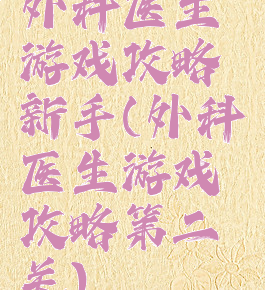 外科医生
游戏攻略
新手(外科
医生游戏
攻略第二
关)